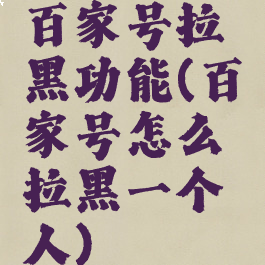 百家号拉
黑功能(百
家号怎么
拉黑一个
人)